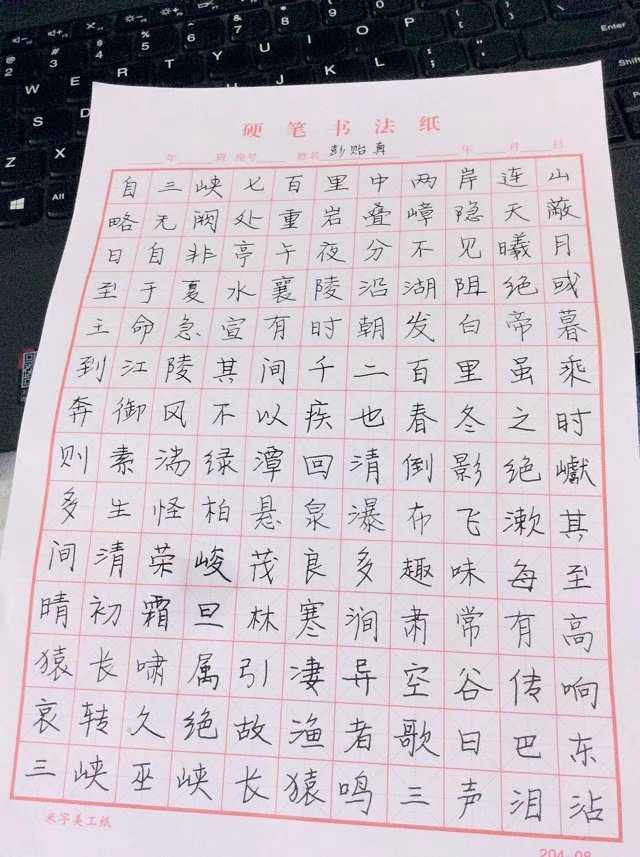 硬笔书法纸
年 班 座号 姓名 彭贻真 年 月 日
自三峡七百里中两岸连山
略无阙处重岩叠嶂隐天蔽
日自非亭午夜分不见曦月
至于夏水襄陵沿湖阻绝或
王命急宣有时朝发白帝暮
到江陵其间千二百里虽乘
奔御风不以疾也春冬之时
则素湍绿潭回清倒影绝巘
多生怪柏悬泉瀑布飞漱其
间清荣峻茂良多趣味每至
晴初霜旦林寒涧肃常有高
猿长啸属引凄异空谷传响
哀转久绝故渔者歌曰巴东
三峡巫峡长猿鸣三声泪沾
米字美工纸